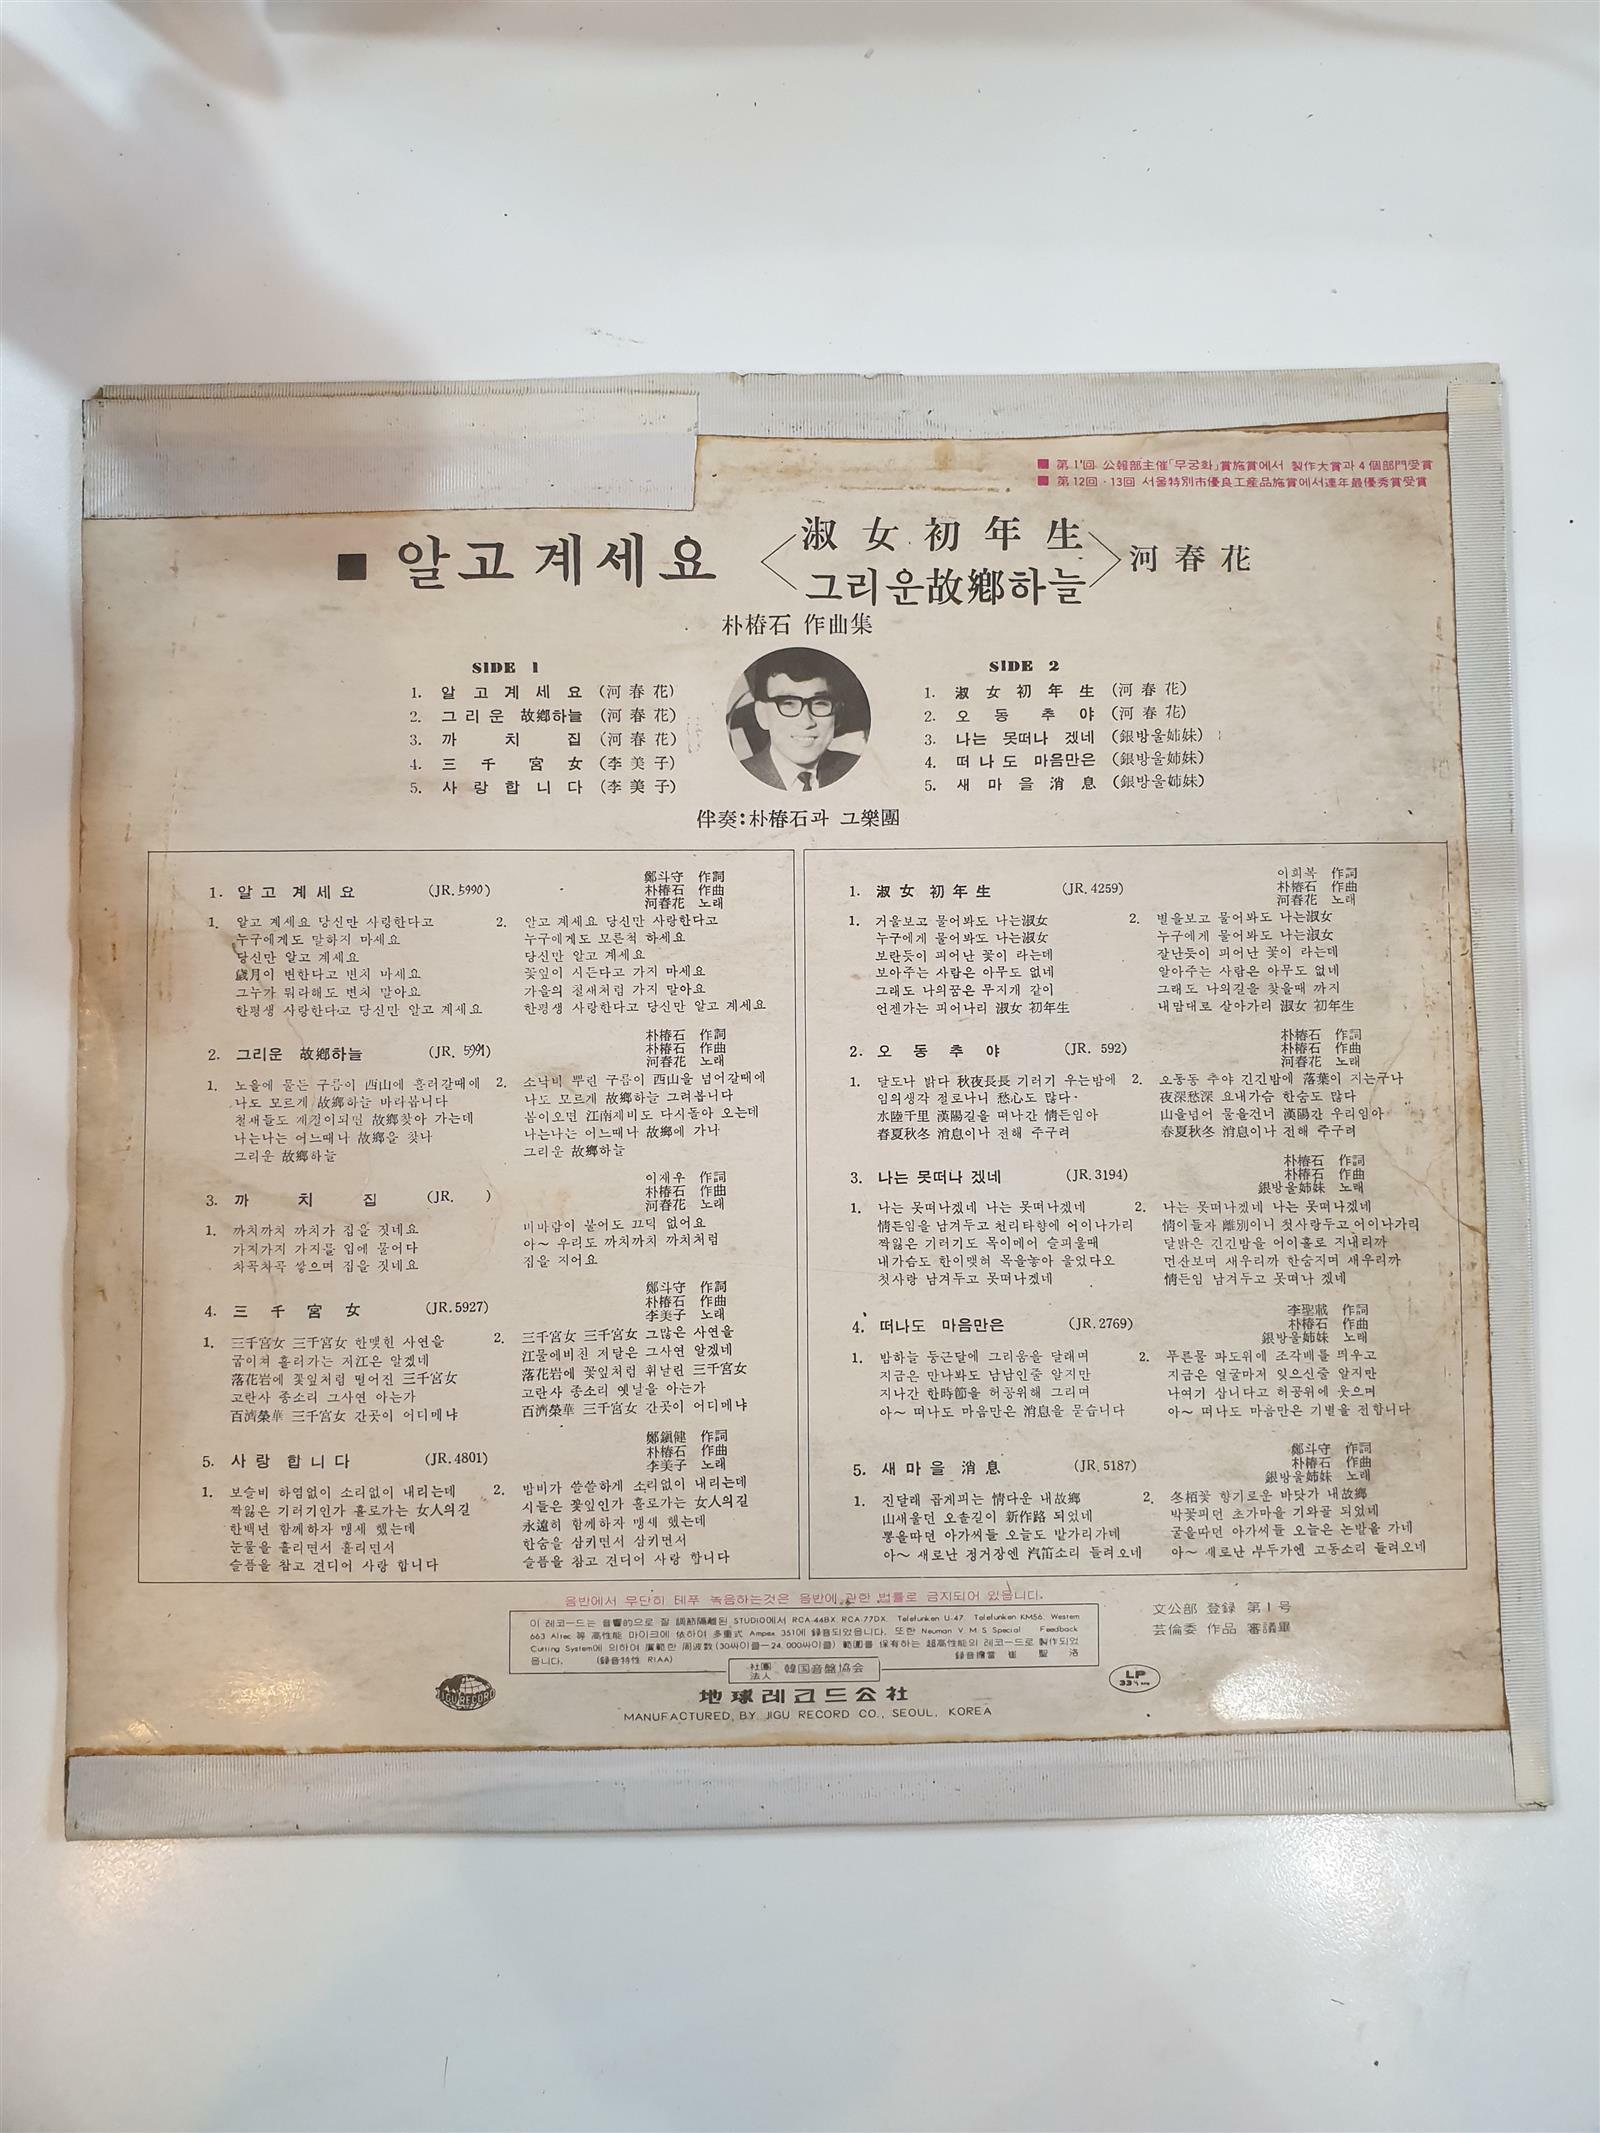 ■ 第1回 公報部主催「무궁화」賞施賞에서 製作大賞과 4個部門受賞
■ 第12回·13回 서울特別市優良工産品施賞에서連年最優秀賞受賞
■ 알고계세요
淑女初年生
그리운故鄕하늘
河春花
朴椿石 作曲集
SIDE 1
1. 알고계세요 (河春花)
2. 그리운 故鄕하늘 (河春花)
3. 까치집 (河春花)
4. 三千宮女 (李美子)
5. 사랑합니다 (李美子)
SIDE 2
1. 淑女初年生 (河春花)
2. 오동추야 (河春花)
3. 나는 못떠나 겠네 (銀방울姉妹)
4. 떠나도 마음만은 (銀방울姉妹)
5. 새마을 消息 (銀방울姉妹)
伴奏:朴椿石과 그樂團
1. 알고계세요 (JR.5990)
鄭斗守 作詞
朴椿石 作曲
河春花 노래
1. 알고 계세요 당신만 사랑한다고
누구에게도 말하지 마세요
당신만 알고 계세요
歲月이 변한다고 변치 마세요
그누가 뭐라해도 변치 말아요
한평생 사랑한다고 당신만 알고 계세요
2. 알고 계세요 당신만 사랑한다고
누구에게도 모른척 하세요
당신만 알고 계세요
꽃잎이 시든다고 가지 마세요
가을의 철새처럼 가지 말아요
한평생 사랑한다고 당신만 알고 계세요
2. 그리운 故鄕하늘 (JR. 5991)
朴椿石 作詞
朴椿石 作曲
河春花 노래
1. 노을에 물든 구름이 西山에 흘러갈때에
나도 모르게 故鄕하늘 바라봅니다
철새들도 계절이되면 故鄕찾아 가는데
나는나는 어느때나 故鄕을 찾나
그리운 故鄕하늘
2. 소낙비 뿌린 구름이 西山을 넘어갈때에
나도 모르게 故鄕하늘 그려봅니다
봄이오면 江南제비도 다시돌아 오는데
나는나는 어느때나 故鄕에 가나
그리운 故鄕하늘
3. 까치집 (JR. )
이재우 作詞
朴椿石 作曲
河春花 노래
1. 까치까치 까치가 집을 짓네요
가지가지 가지를 입에 물어다
차곡차곡 쌓으며 집을 짓네요
비바람이 불어도 끄덕 없어요
아~ 우리도 까치까치 까치처럼
집을 지어요
4. 三千宮女 (JR.5927)
鄭斗守 作詞
朴椿石 作曲
李美子 노래
1. 三千宮女 三千宮女 한맺힌 사연을
굽이쳐 흘러가는 저江은 알겠네
落花岩에 꽃잎처럼 떨어진 三千宮女
고란사 종소리 그사연 아는가
百濟榮華 三千宮女 간곳이 어디메냐
2. 三千宮女 三千宮女 그많은 사연을
江물에비친 저달은 그사연 알겠네
落花岩에 꽃잎처럼 휘날린 三千宮女
고란사 종소리 옛날을 아는가
百濟榮華 三千宮女 간곳이 어디메냐
5. 사랑합니다 (JR.4801)
鄭鎭健 作詞
朴椿石 作曲
李美子 노래
1. 보슬비 하염없이 소리없이 내리는데
짝잃은 기러기인가 홀로가는 女人의길
한백년 함께하자 맹세 했는데
눈물을 흘리면서 흘리면서
슬픔을 참고 견디어 사랑 합니다
2. 밤비가 쓸쓸하게 소리없이 내리는데
시들은 꽃잎인가 홀로가는 女人의길
永遠히 함께하자 맹세 했는데
한숨을 삼키면서 삼키면서
슬픔을 참고 견디어 사랑 합니다
1. 淑女初年生 (JR.4259)
이희복 作詞
朴椿石 作曲
河春花 노래
1. 거울보고 물어봐도 나는淑女
누구에게 물어봐도 나는淑女
보란듯이 피어난 꽃이 라는데
보아주는 사람은 아무도 없네
그래도 나의꿈은 무지개 같이
언젠가는 피어나리 淑女 初年生
2. 별을보고 물어봐도 나는淑女
누구에게 물어봐도 나는淑女
잘난듯이 피어난 꽃이 라는데
알아주는 사람은 아무도 없네
그래도 나의길을 찾을때 까지
내맘대로 살아가리 淑女 初年生
2. 오동추야 (JR. 592)
朴椿石 作詞
朴椿石 作曲
河春花 노래
1. 달도나 밝다 秋夜長長 기러기 우는밤에
임의생각 절로나니 愁心도 많다
水陸千里 漢陽길을 떠나간 情든임아
春夏秋冬 消息이나 전해 주구려
2. 오동동 추야 긴긴밤에 落葉이 지는구나
夜深愁深 요내가슴 한숨도 많다
山을넘어 물을건너 漢陽간 우리임아
春夏秋冬 消息이나 전해 주구려
3. 나는 못떠나 겠네 (JR.3194)
朴椿石 作詞
朴椿石 作曲
銀방울姉妹 노래
1. 나는 못떠나겠네 나는 못떠나겠네
情든임을 남겨두고 천리타향에 어이나가리
짝잃은 기러기도 목이메어 슬피울때
내가슴도 한이맺혀 목을놓아 울었다오
첫사랑 남겨두고 못떠나겠네
2. 나는 못떠나겠네 나는 못떠나겠네
情이들자 離別이니 첫사랑두고 어이나가리
달밝은 긴긴밤을 어이홀로 지내리까
먼산보며 새우리까 한숨지며 새우리까
情든임 남겨두고 못떠나 겠네
4. 떠나도 마음만은 (JR.2769)
李聖載 作詞
朴椿石 作曲
銀방울姉妹 노래
1. 밤하늘 둥근달에 그리움을 달래며
지금은 만나봐도 남남인줄 알지만
지나간 한時節을 허공위해 그리며
아~ 떠나도 마음만은 消息을 묻습니다
2. 푸른물 파도위에 조각배를 띄우고
지금은 얼굴마저 잊으신줄 알지만
나여기 삽니다고 허공위에 웃으며
아~ 떠나도 마음만은 기별을 전합니다
5. 새마을 消息 (JR.5187)
鄭斗守 作詞
朴椿石 作曲
銀방울姉妹 노래
1. 진달래 곱게피는 情다운 내故鄕
山새울던 오솔길이 新作路 되었네
뽕을따던 아가씨들 오늘도 밭가리가네
아~ 새로난 정거장엔 汽笛소리 들려오네
2. 冬栢꽃 향기로운 바닷가 내故鄕
박꽃피던 초가마을 기와골 되었네
굴을따던 아가씨들 오늘은 논밭을 가네
아~ 새로난 부두가엔 고동소리 들려오네
음반에서 무단히 테푸 녹음하는것은 음반에 관한 법률로 금지되어 있읍니다.
이 레코—드는 音響的으로 잘 調節隔離된 STUDIO에서 RCA-44BX, RCA-77DX, Telefunken U-47, Telefunken KM56, Western
663 Altec 等 高性能 마이크에 依하여 多重式 Ampex 351에 録音되었읍니다. 또한 Neuman V.M.S Special Feedback
Cutting System에 의하여 廣範한 周波數(30싸이클—24,000싸이클) 範囲를 保有하는 超高性能의 레코—드로 製作되었
읍니다. (録音特性 RIAA) 録音擔當 崔聖洛
社團法人 韓国音盤協会
文公部 登録 第1号
芸倫委 作品 審議畢
JIGU RECORD
地球레코드公社
LP
33⅓ RPM
MANUFACTURED, BY JIGU RECORD CO., SEOUL, KOREA